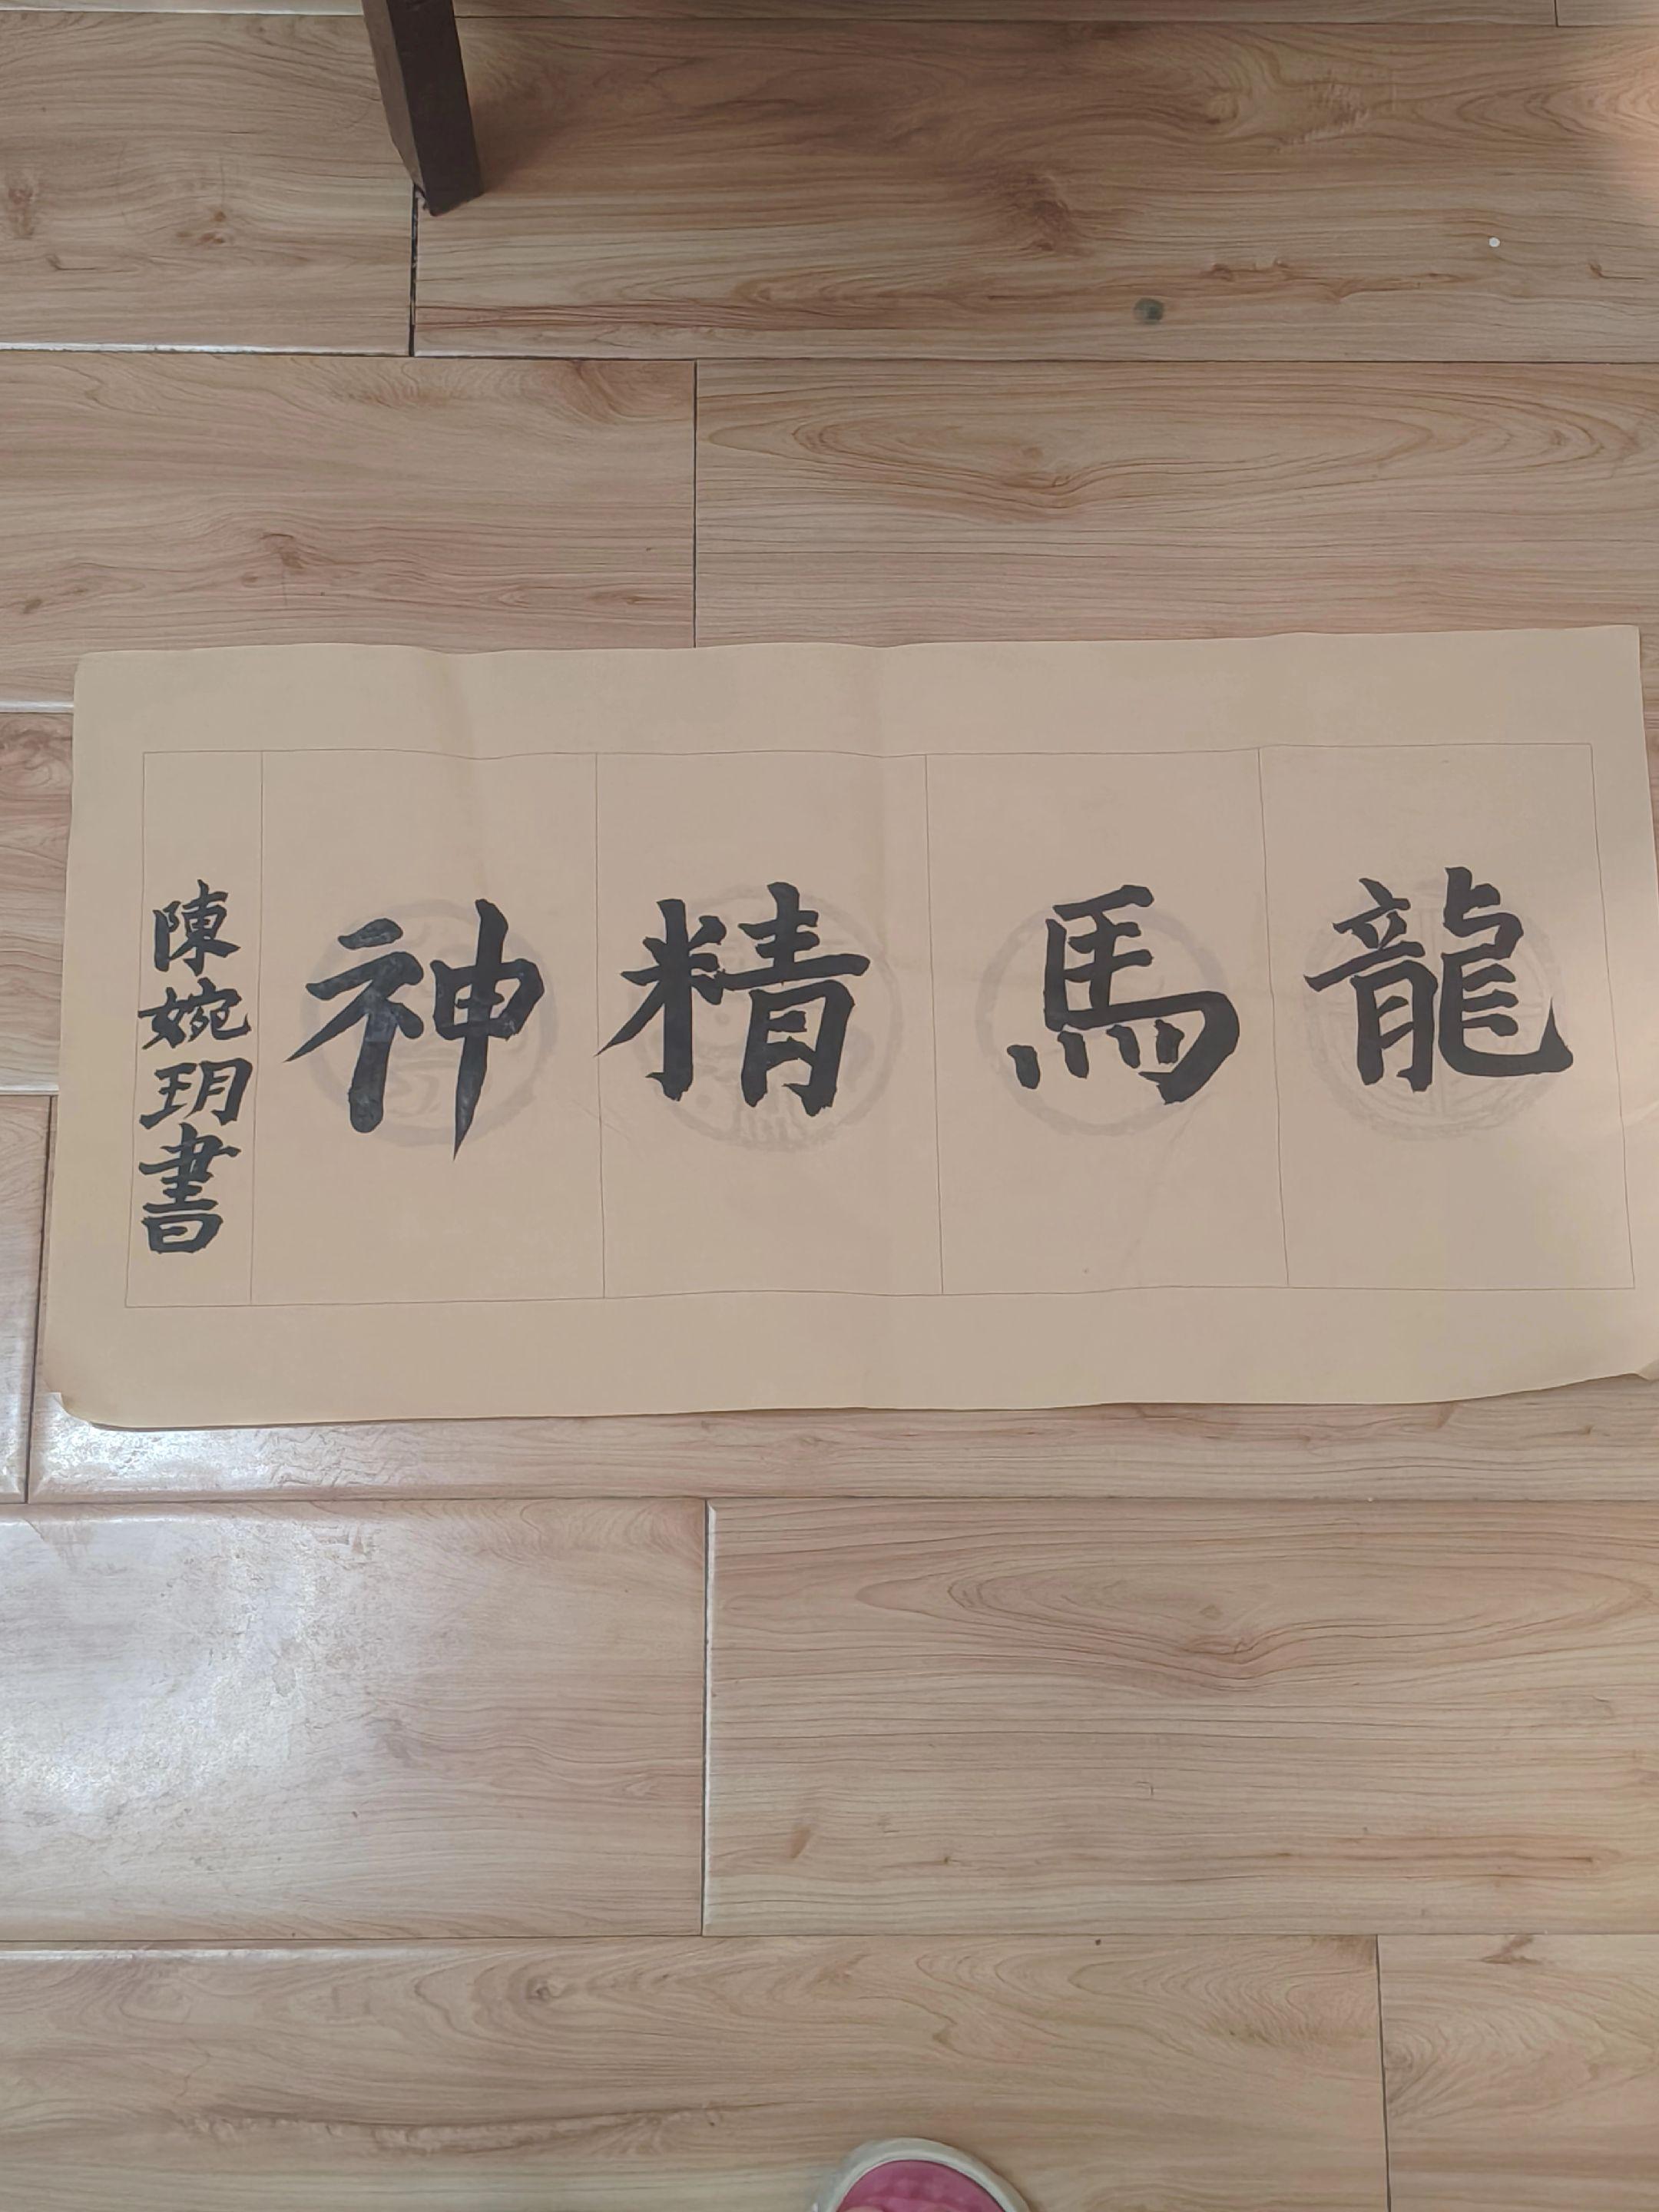 龍馬精神
陳婉玥書